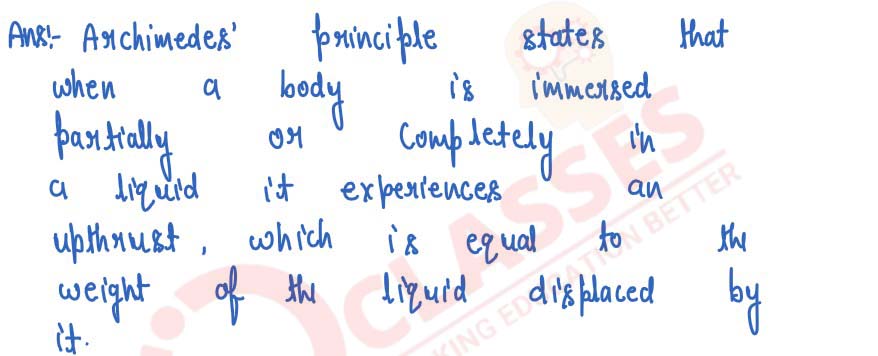 Ans:- Archimedes' principle states that
when a body is immersed
partially or completely in
a liquid it experiences an
upthrust, which is equal to the
weight of the liquid displaced by
it.
CLASSES
KING EDUCATION BETTER